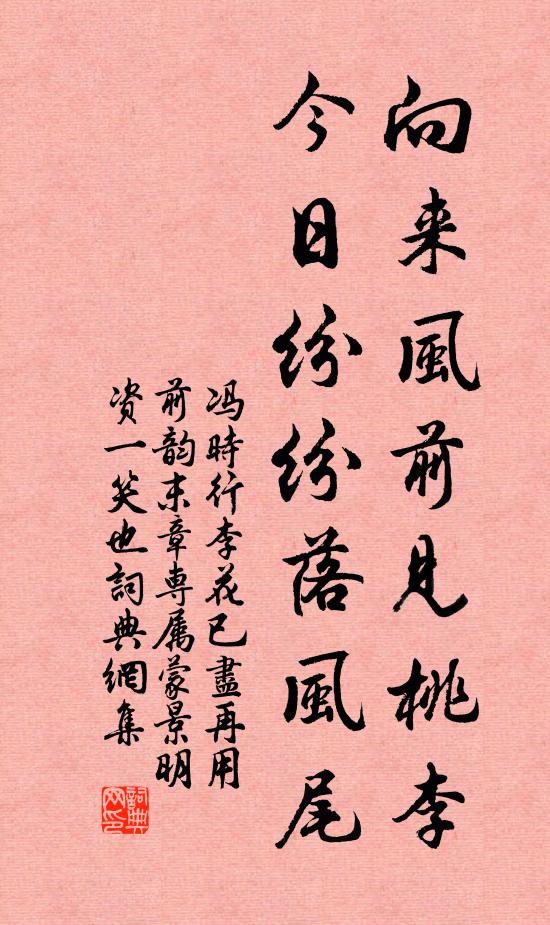 向来風前見桃李
今日紛紛落風尾
冯時行李花已盡再用
前韵末章専属蒙景明
资一笑也詞典網集
詞典网印